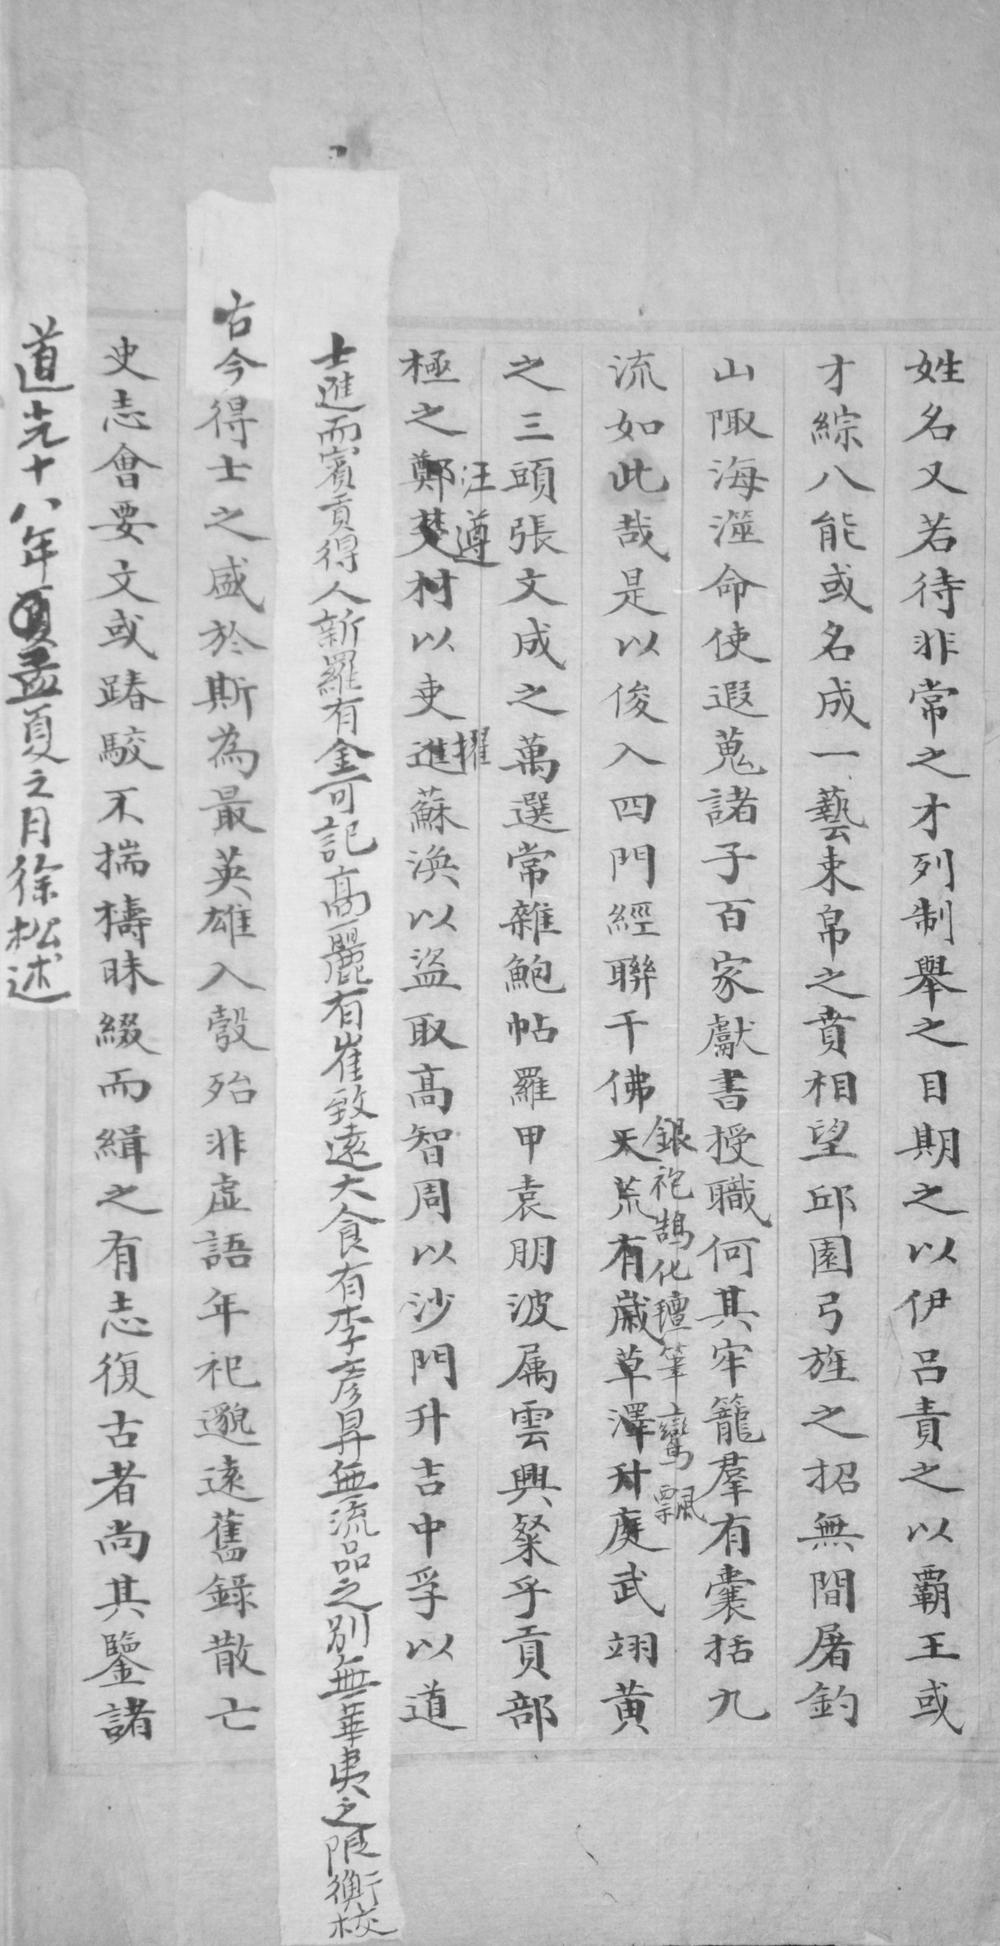 姓名又若待非常之才列制舉之目期之以伊呂責之以霸王或
才綜八能或名成一藝束帛之賁相望邱園弓旌之招無間屠釣
山陬海澨命使遐蒐諸子百家獻書授職何其牢籠羣有囊括九
流如此哉是以俊入四門經聯千佛天荒有歲草澤升庭武翊黃
銀袍鵠化壇筆鸞飄
之三頭張文成之萬選常雜鮑帖羅甲袁朋波属雲興粲乎貢部
汪遵
擢
極之鄭村以吏進蘇渙以盜取高智周以沙門升吉中孚以道
士進而賓貢得人新羅有金可記高麗有崔致遠大食有李彥昇無流品之別無華夷之限衡校
古今得士之盛於斯為最英雄入彀殆非虛語年祀邈遠舊錄散亡
史志會要文或踳駮不揣檮昧綴而緝之有志復古者尚其鑒諸
道光十八年孟夏之月徐松述